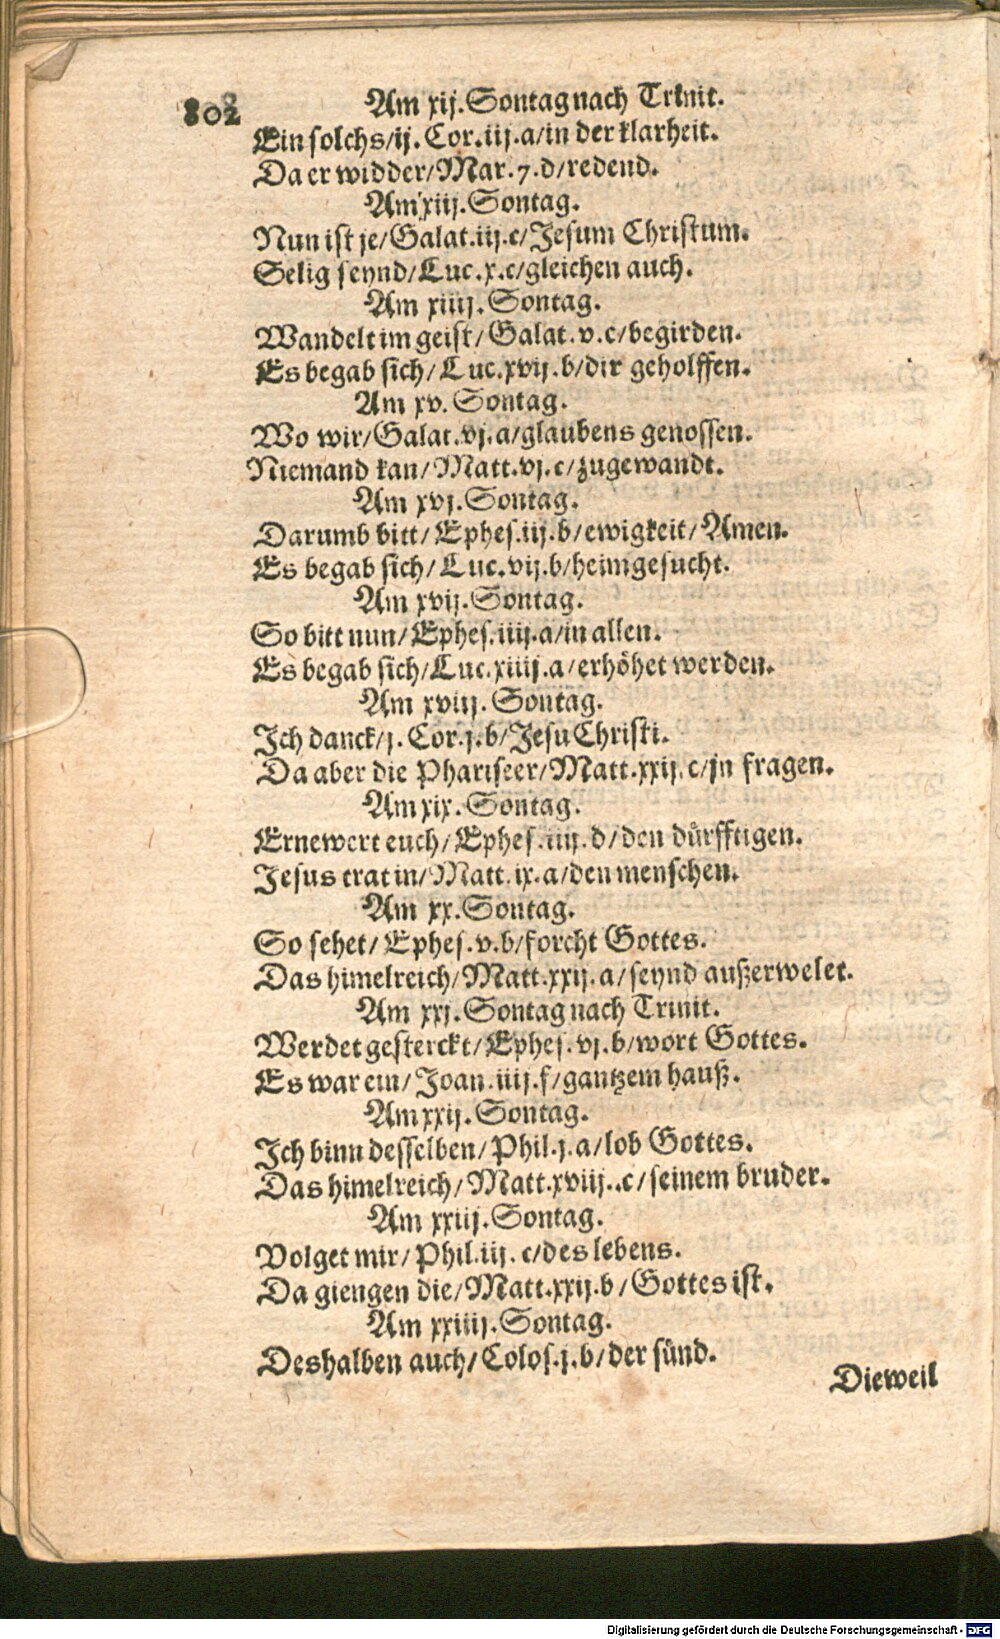 802
Am xij. Sontag nach Trinit.
Ein solchs/ ij. Cor. iij. a/ in der klarheit.
Da er widder/ Mar. 7. d/ redend.
Am xiij. Sontag.
Nun ist je/ Galat. iij. c/ Jesum Christum.
Selig seynd/ Luc. x. c/ gleichen auch.
Am xiiij. Sontag.
Wandelt im geist/ Galat. v. c/ begirden.
Es begab sich/ Luc. xvij. b/ dir geholffen.
Am xv. Sontag.
Wo wir/ Galat. vj. a/ glaubens genossen.
Niemand kan/ Matt. vj. c/ zugewandt.
Am xvj. Sontag.
Darumb bitt/ Ephes. iij. b/ ewigkeit/ Amen.
Es begab sich/ Luc. vij. b/ heimgesucht.
Am xvij. Sontag.
So bitt nun/ Ephes. iiij. a/ in allen.
Es begab sich/ Luc. xiiij. a/ erhöhet werden.
Am xviij. Sontag.
Ich danck/ j. Cor. j. b/ Jesu Christi.
Da aber die Phariseer/ Matt. xxij. c/ jn fragen.
Am xix. Sontag.
Ernewert euch/ Ephes. iiij. d/ den dürfftigen.
Jesus trat in/ Matt. ix. a/ den menschen.
Am xx. Sontag.
So sehet/ Ephes. v. b/ forcht Gottes.
Das himelreich/ Matt. xxij. a/ seynd außerwelet.
Am xxj. Sontag nach Trinit.
Werdet gesterckt/ Ephes. vj. b/ wort Gottes.
Es war ein/ Joan. iiij. f/ gantzem hauß.
Am xxij. Sontag.
Ich binn desselben/ Phil. j. a/ lob Gottes.
Das himelreich/ Matt. xviij.. c/ seinem bruder.
Am xxiij. Sontag.
Volget mir/ Phil. iij. c/ des lebens.
Da giengen die/ Matt. xxij. b/ Gottes ist.
Am xxiiij. Sontag.
Deshalben auch/ Colos. j. b/ der sünd.
Dieweil
Digitalisierung gefördert durch die Deutsche Forschungsgemeinschaft - DFG